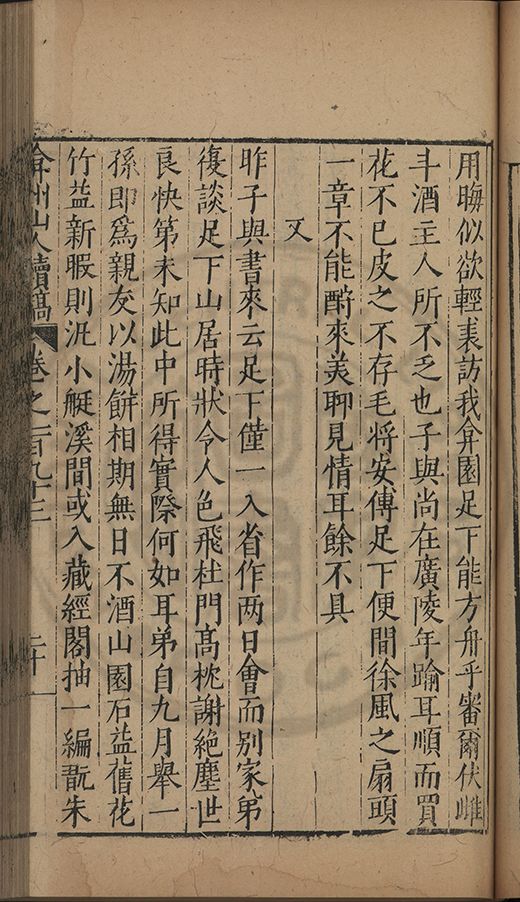 用晦似欲輕裘訪我弇園足下能方舟乎審爾伏雌
斗酒主人所不乏也子與尚在廣陵年踰耳順而買
花不已皮之不存毛將安傅足下便間徐風之扇頭
一章不能酧來美聊見情耳餘不具
又
昨子與書來云足下僅一入省作两日會而别家弟
復談足下山居時狀令人色飛杜門髙枕謝絶塵世
良快第未知此中所得實際何如耳弟自九月舉一
孫即爲親友以湯餅相期無日不酒山園石益舊花
竹益新暇則汎小艇溪間或入藏經閣抽一編翫朱
弇州山人續稿 卷之一百九十三 二十一